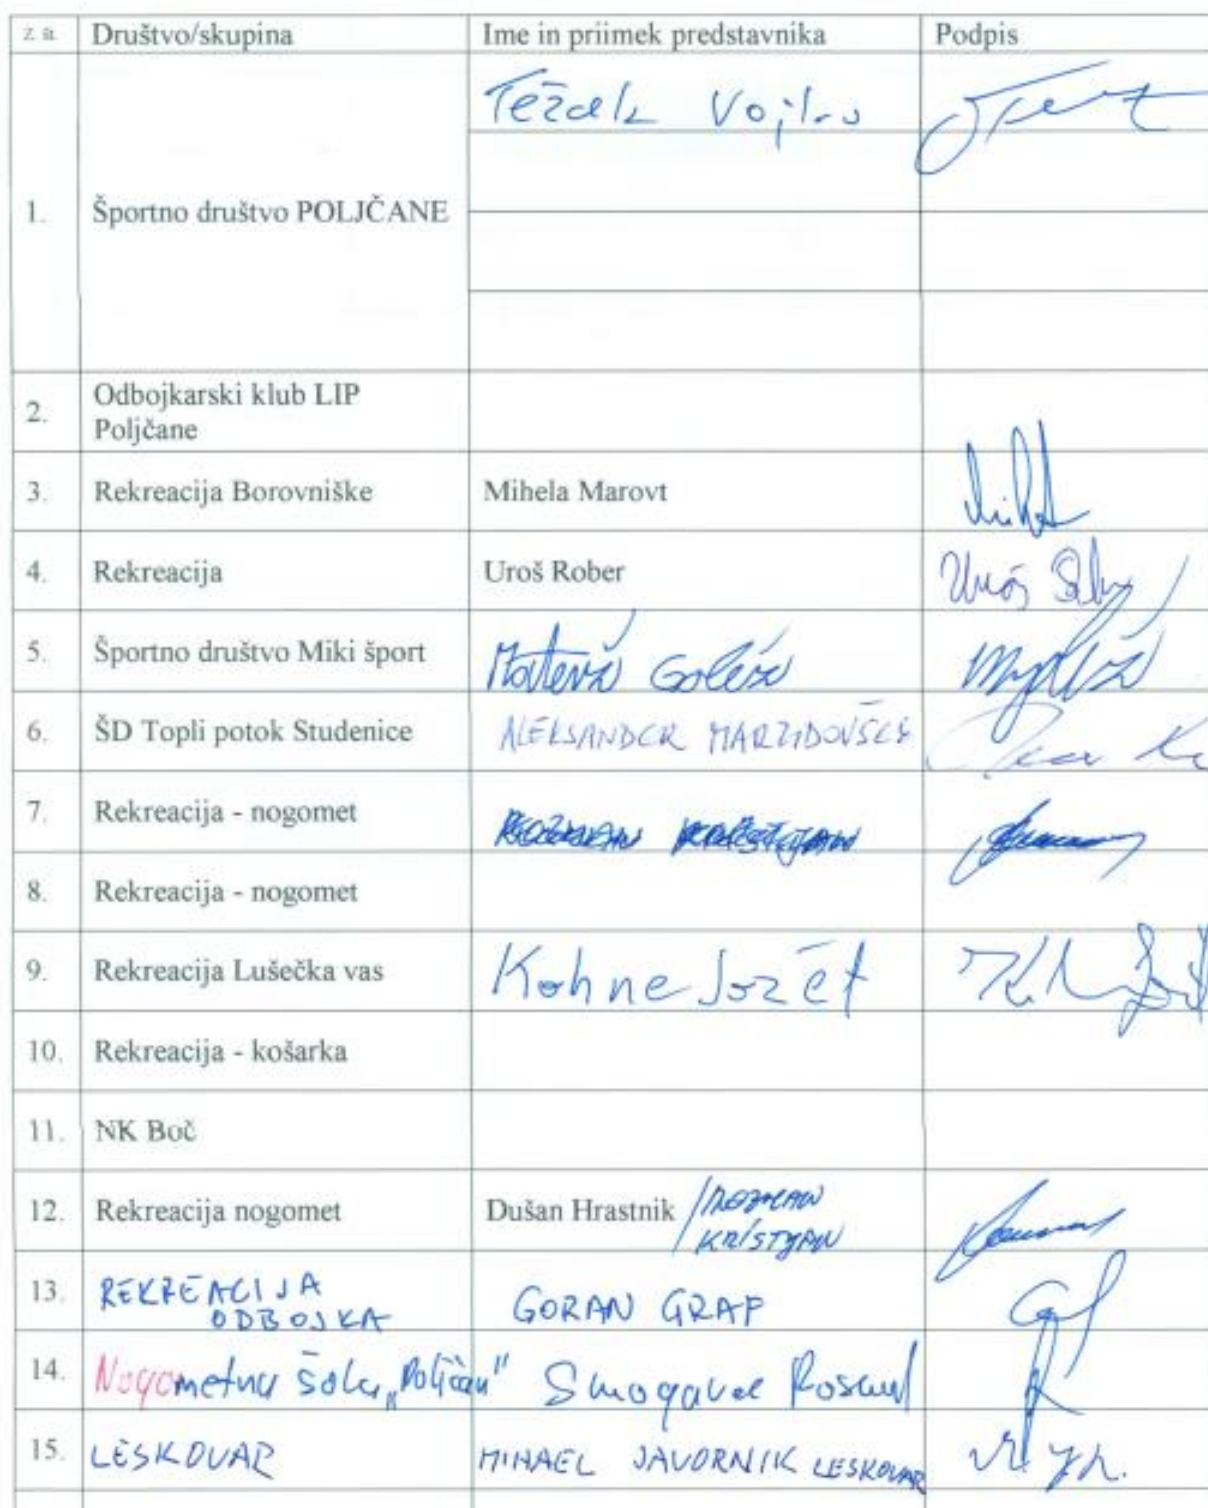 Z. št. Društvo/skupina Ime in priimek predstavnika Podpis
Težak Vojko
1. Športno društvo POLJČANE
2. Odbojkarski klub LIP
Poljčane
3. Rekreacija Borovniške Mihela Marovt
4. Rekreacija Uroš Rober Uroš
5. Športno društvo Miki šport Matevž Golež
6. ŠD Topli potok Studenice ALEKSANDER
7. Rekreacija - nogomet
8. Rekreacija - nogomet
9. Rekreacija Lušečka vas Kohne Jožef
10. Rekreacija - košarka
11. NK Boč
12. Rekreacija nogomet Dušan Hrastnik / ROZMAN
KRISTIJAN
13. REKREACIJA
ODBOJKA GORAN GRAF
14. Nogometna šola „Poljčane" Smogavc
15. LESKOVAR MIHAEL JAVORNIK LESKOVAR